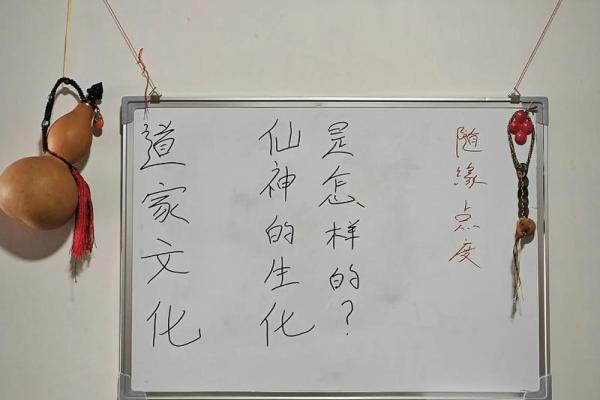 道家文化
仙神的生化
是怎样的?
随緣点度